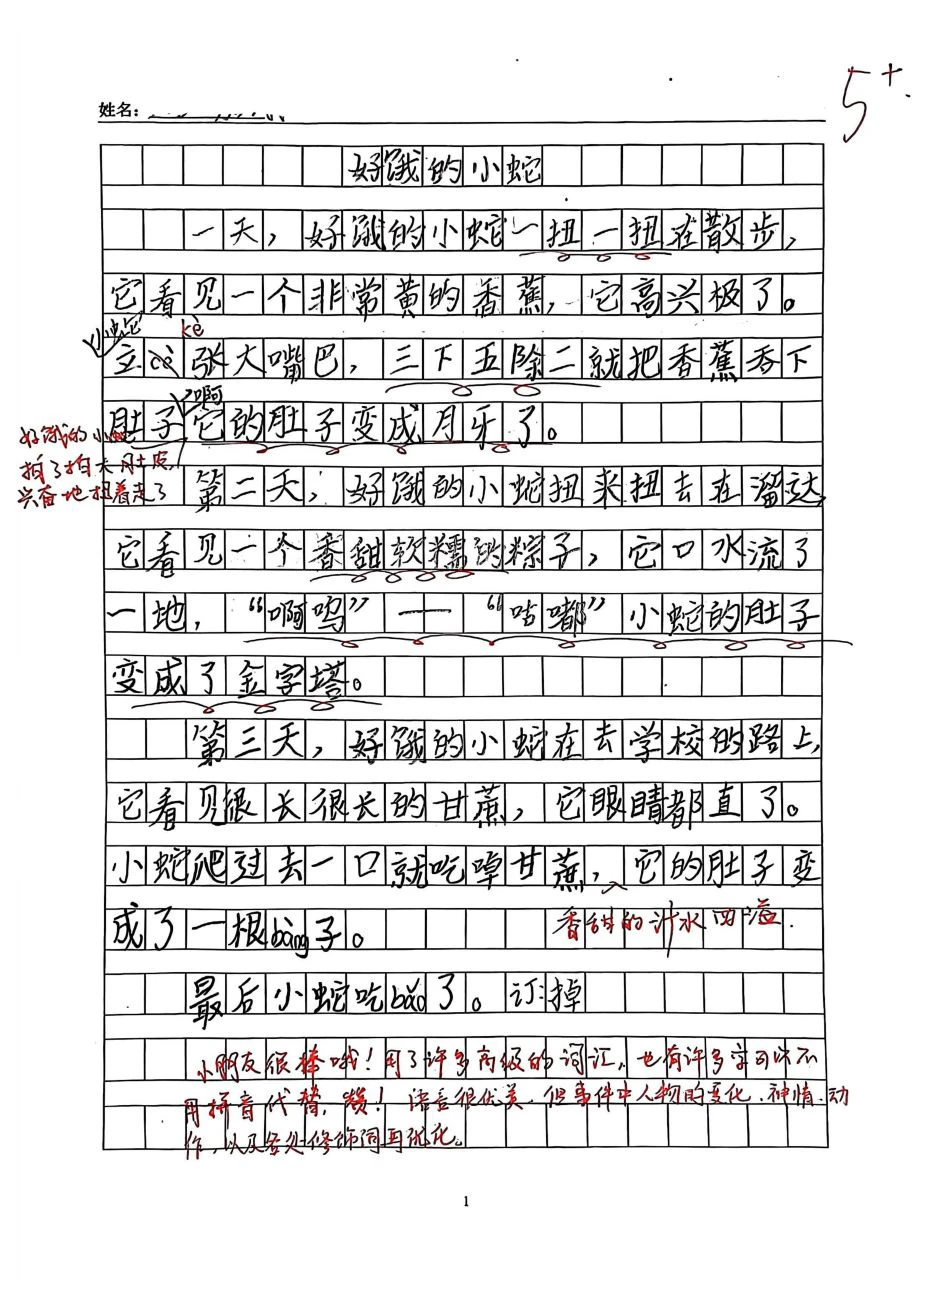 5+
姓名：
好饿的小蛇
一天，好饿的小蛇一扭一扭在散步，
它看见一个非常黄的香蕉，它高兴极了。
小蛇
kè
立cè张大嘴巴，三下五除二就把香蕉吞下
啊
肚子它的肚子变成月牙了。
好饿的小蛇
拍了拍大肚皮，
兴奋地扭着走了
第二天，好饿的小蛇扭来扭去在溜达，
它看见一个香甜软糯的粽子，它口水流了
一地，“啊呜”——“咕嘟”小蛇的肚子
变成了金字塔。
第三天，好饿的小蛇在去学校的路上，
它看见很长很长的甘蔗，它眼睛都直了。
小蛇爬过去一口就吃掉甘蔗，它的肚子变
香甜的汁水四溢.
成了一根bàng子。
最后小蛇吃bǎo了。订：掉
小朋友很棒哦！用了许多高级的词汇，也有许多字可以不
用拼音代替，赞！语言很优美，但事件中人物的变化、神情、动
作，以及各处修饰词再优化。
1